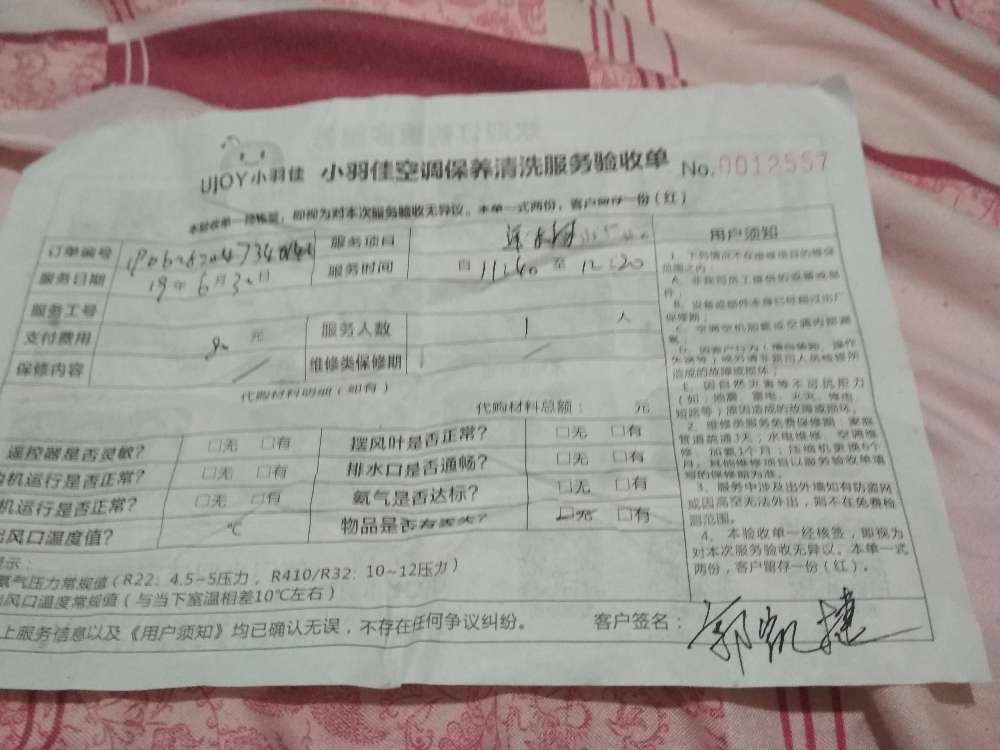 UJOY小羽佳 小羽佳空调保养清洗服务验收单 No.0012557
本验收单一经核签，即视为对本次服务验收无异议。本单一式两份，客户留存一份（红）
订单编号 服务项目
服务日期 19年6月30日 服务时间 自 11:40 至 12:20
服务工号
支付费用 元 服务人数 1 人
保修内容 维修类保修期
代购材料明细（如有）
代购材料总额： 元
遥控器是否灵敏？ □无 □有 摆风叶是否正常？ □无 □有
机运行是否正常？ □无 □有 排水口是否通畅？ □无 □有
机运行是否正常？ □无 □有 氨气是否达标？ □无 □有
出风口温度值？ ℃ 物品是否有丢失？ □无 □有
提示：
氨气压力常规值（R22：4.5~5压力，R410/R32：10~12压力）
出风口温度常规值（与当下室温相差10℃左右）
上服务信息以及《用户须知》均已确认无误，不存在任何争议纠纷。 客户签名：郭凯捷
用户须知
1、下列情况不在维修项目的维保
范围之内：
A、非我司员工提供的安装或部
件；
B、设备或部件本身已经超过出厂
保修期；
E、因自然灾害等不可抗拒力
（如：地震、雷电、火灾、停电、
短路等）原因造成的故障或损坏。
2、维修类服务免费保修期：家庭
管道疏通3天；水电维修、空调维
修、加氨1个月；压缩机更换6个
月。其他维修项目以服务验收单填
写的保修期为准。
3、服务中涉及出外墙如有防盗网
或因高空无法外出，则不在免费检
测范围。
4、本验收单一经核签，即视为
对本次服务验收无异议。本单一式
两份，客户留存一份（红）。